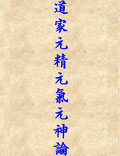 道家元精元氣元神論